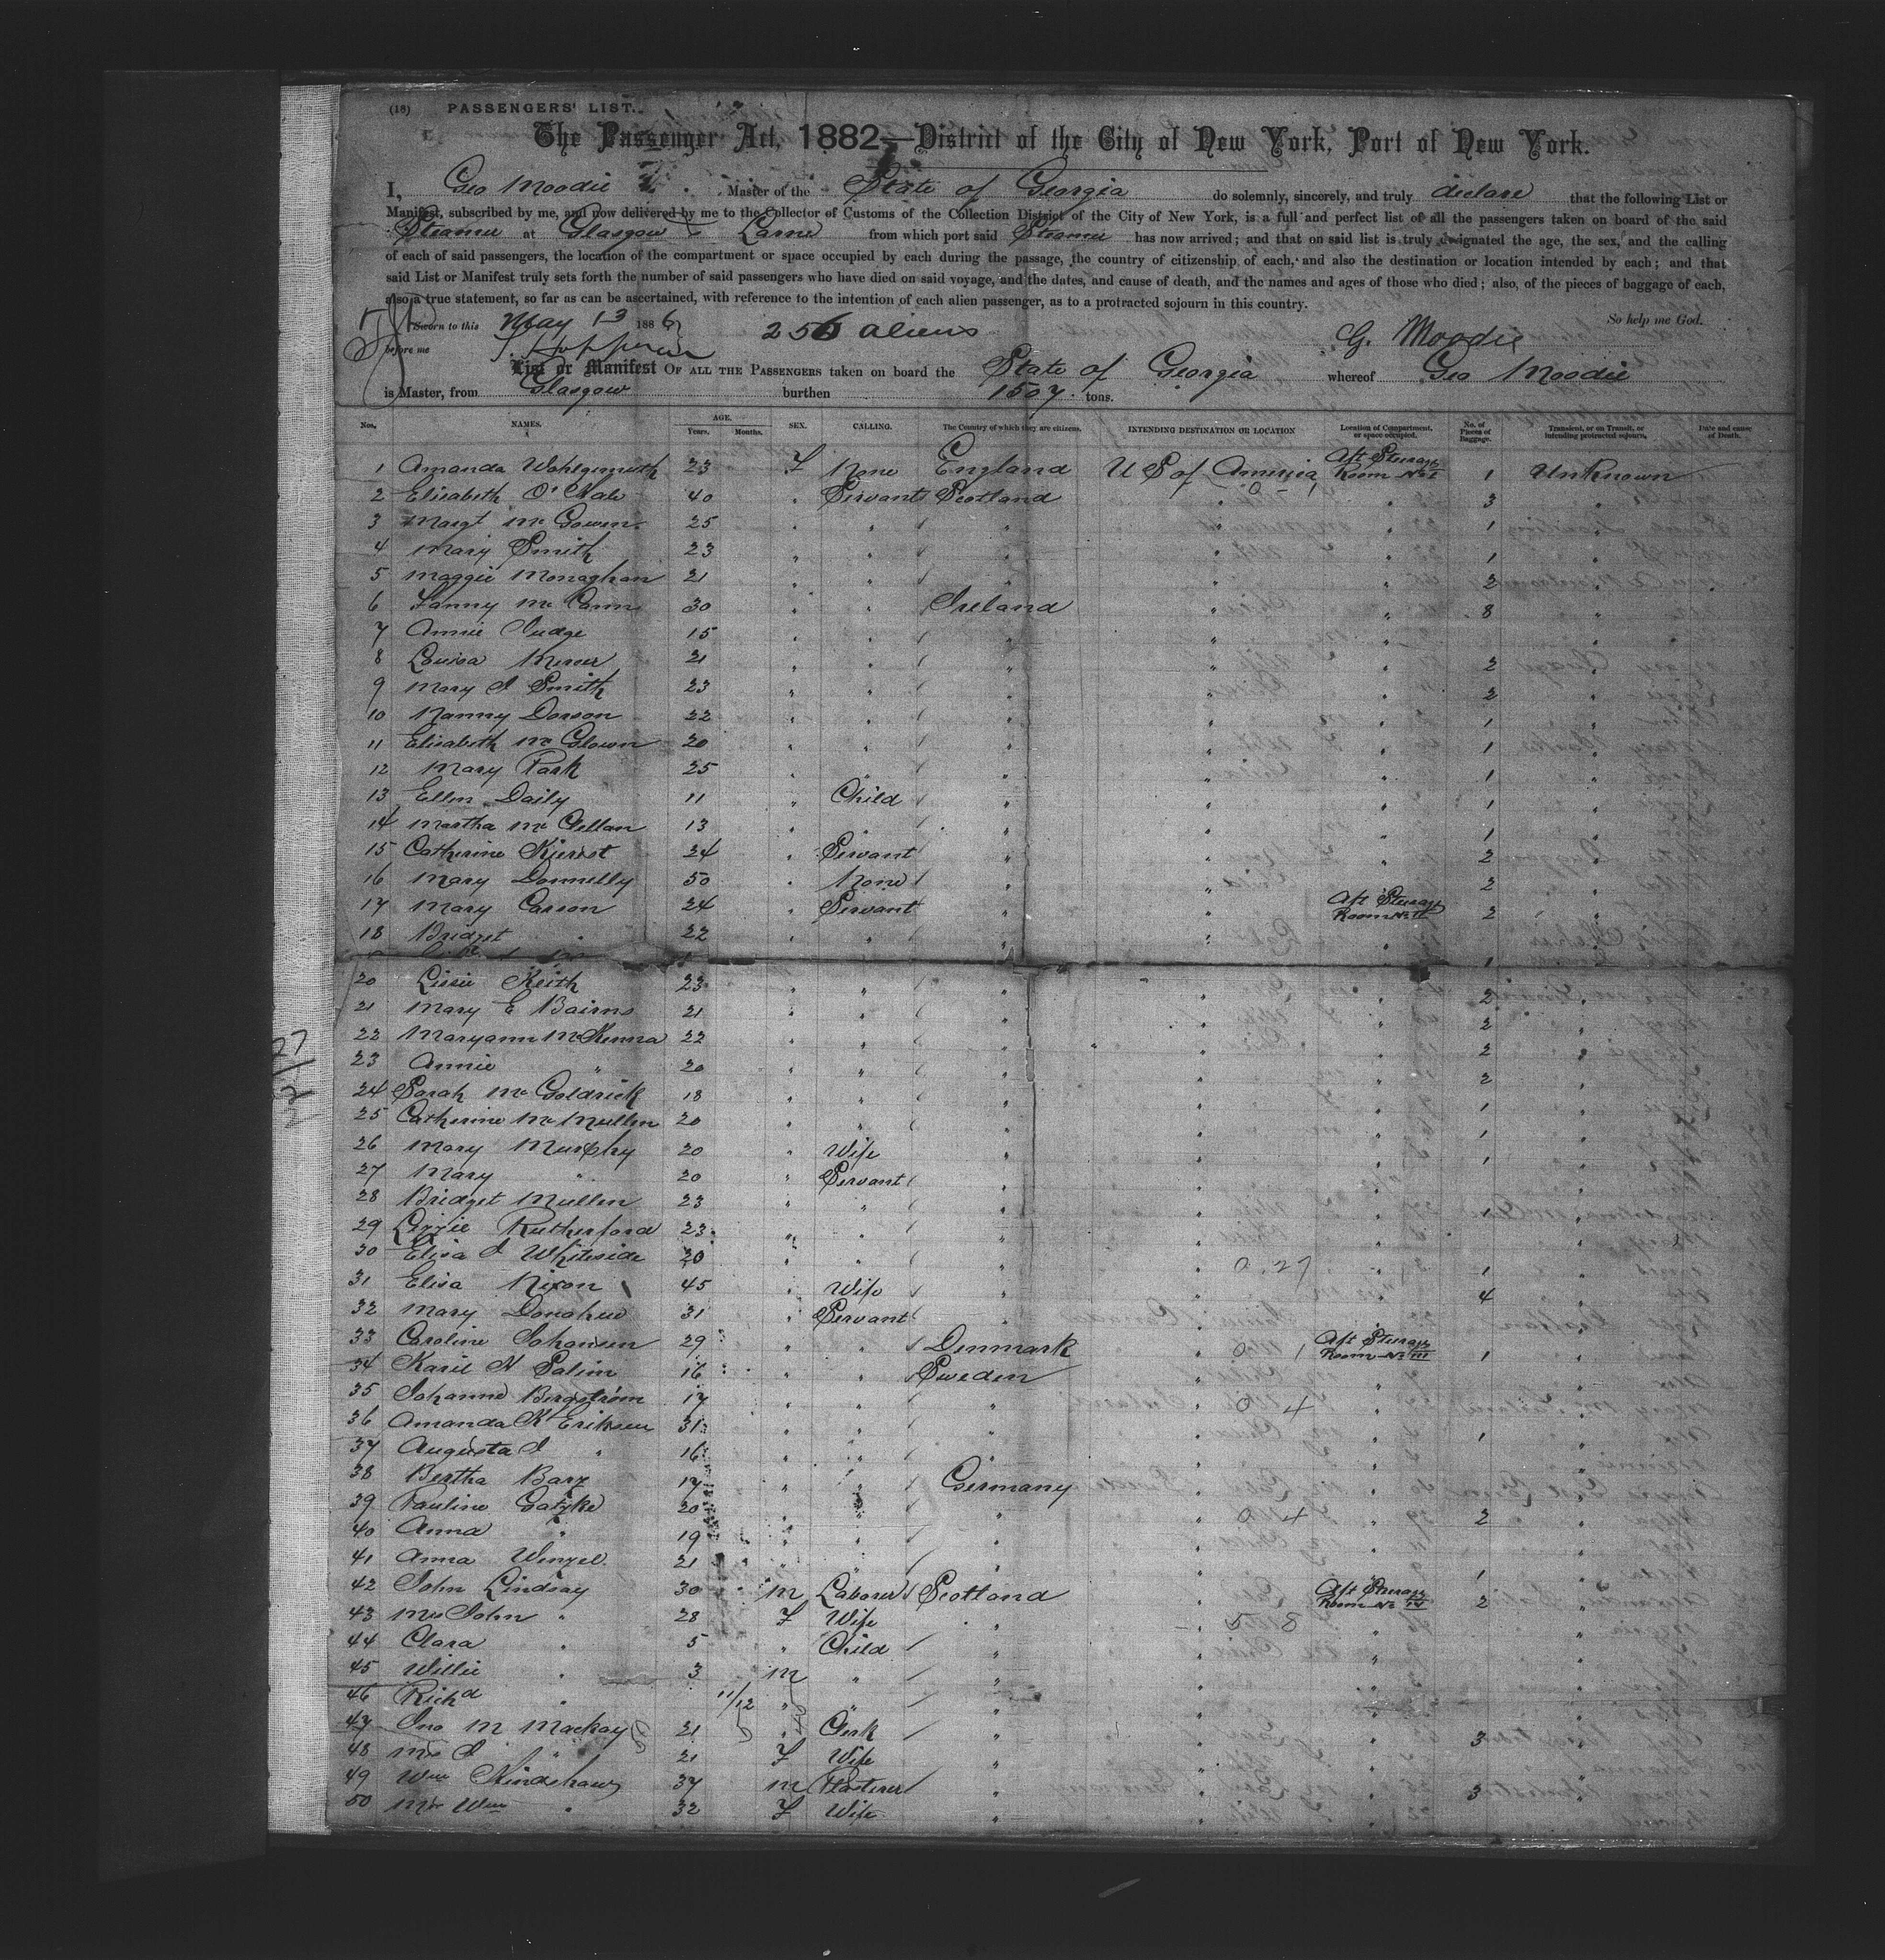 (18) PASSENGERS' LIST.
The Passenger Act, 1882—District of the City of New York, Port of New York.
I, Geo Moodie Master of the State of Georgia do solemnly, sincerely, and truly declare that the following List or
Manifest, subscribed by me, and now delivered by me to the Collector of Customs of the Collection District of the City of New York, is a full and perfect list of all the passengers taken on board of the said
Steamer at Glasgow & Larne from which port said Steamer has now arrived; and that on said list is truly designated the age, the sex, and the calling
of each of said passengers, the location of the compartment or space occupied by each during the passage, the country of citizenship of each, and also the destination or location intended by each; and that
said List or Manifest truly sets forth the number of said passengers who have died on said voyage, and the dates, and cause of death, and the names and ages of those who died; also, of the pieces of baggage of each,
also a true statement, so far as can be ascertained, with reference to the intention of each alien passenger, as to a protracted sojourn in this country.
So help me God.
Sworn to this May 13 1886 256 aliens G. Moodie
before me
List or Manifest OF ALL THE PASSENGERS taken on board the State of Georgia whereof Geo Moodie
is Master, from Glasgow burthen 1507 tons.
Nos. NAMES. AGE. Years. Months. SEX. CALLING. The Country of which they are citizens. INTENDING DESTINATION OR LOCATION Location of Compartment, or space occupied. No. of Pieces of Baggage. Transient, or on Transit, or intending protracted sojourn. Date and cause of Death.
1 Amanda Wohlgemuth 23 F None England U S of America Aft Steerage Room No I 1 Unknown
2 Elisabeth 40 " Servant Scotland " " 3 "
3 Margt McGowen 25 " " " " " 1 "
4 Mary Smith 23 " " " " " 1 "
5 Maggie Monaghan 21 " " " " " 2 "
6 Fanny McCann 30 " " Ireland " " 8 "
7 Annie Judge 15 " " " " " "
8 Louisa Mercer 21 " " " " " 2 "
9 Mary J Smith 23 " " " " " 2 "
10 Nanny Dorson 22 " " " " " 1 "
11 Elisabeth McGlown 20 " " " " " 1 "
12 Mary Park 25 " " " " " 1 "
13 Ellen Daily 11 " Child " " " 1 "
14 Martha McClellan 13 " " " " " 1 "
15 Catherine 24 " Servant " " " 2 "
16 Mary Donnelly 50 " None " " " 2 "
17 Mary Carson 24 " Servant " " Aft Steerage Room No II 2 "
18 Bridget " 22 " " " " "
1
20 Lizzie Keith 23 " " " " " 2 "
21 Mary E Bairns 21 " " " " " 2 "
22 Maryann McKenna 22 " " " " " 2 "
23 Annie " 20 " " " " " 2 "
24 Sarah McGoldrick 18 " " " " " 1 "
25 Catherine McMullen 20 " " " " " 1 "
26 Mary Murphy 20 " Wife " " " 1 "
27 Mary " 20 " Servant " " " "
28 Bridget Mullen 23 " " " " " 1 "
29 Lizzie Rutherford 23 " " " " " "
30 Elisa J Whiteside 20 " " " " 0 27 " 1 "
31 Elisa Nixon 45 " Wife " " " 4 "
32 Mary Donohue 31 " Servant " " " "
33 Caroline Johansen 29 " " Denmark " 0 1 Aft Steerage Room No III 1 "
34 Karie N Salim 16 " " Sweden " " "
35 Johanne Bergstrom 17 " " " " 0 4 " "
36 Amanda K Eriksen 31 " " " " " 1 "
37 Augusta J " 16 " " " " " "
38 Bertha Barz 17 " " Germany " " "
39 Pauline Gatzke 20 " " " " 0 4 " 2 "
40 Anna " 19 " " " " " "
41 Anna Wenzel 21 " " " " " 1 "
42 John Lindsay 30 M Laborer Scotland " Aft Steerage Room No IV 2 "
43 Mrs John " 28 F Wife " " 5 8 " "
44 Clara " 5 " Child " " " "
45 Willie " 3 M " " " " "
46 Richd " 11/12 " " " " " "
47 Jno M Mackay 21 " Clerk " " " 3 "
48 Mrs J " 21 F Wife " " " "
49 Wm Kindshaw 37 M Plasterer " " " 3 "
50 Mrs Wm " 32 F Wife " " " "